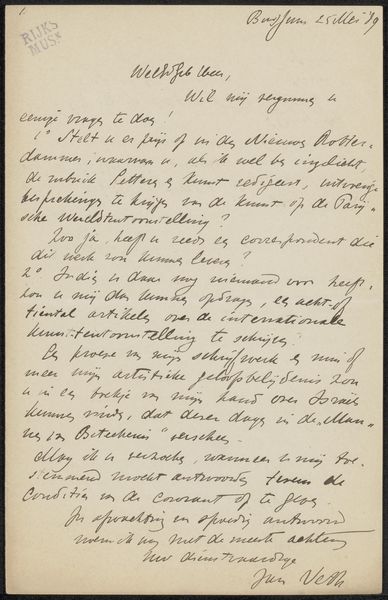 RIJKS
MUS.
Bussum 25 Mei '89
WelEdelgeb Heer,
Wil mij vergunnen u
eenige vragen te doen!
1° Stelt u er prijs op in den Nieuwe Rotter-
dammer, waarvan u, als ik wel ben ingelicht,
de rubriek Letteren en Kunst redigeert, uitvoerige
besprekingen te krijgen van de kunst op de Parij-
sche Wereldtentoonstelling?
Zoo ja, heeft u reeds een correspondent die
dit werk zou kunnen leveren?
2° Indien u daar nog niemand voor heeft,
zou u mij dan kunnen opdragen, een acht- of
tiental artikelen over de internationale
kunst-tentoonstelling te schrijven?
Een proeve van mijn schrijfwerk en min of
meer mijn artistieke geloofsbelijdenis zou
u in een boekje van mijn hand over Israëls
kunnen vinden, dat dezer dagen in de "Man-
nen van Beteekenis" verscheen.
Mag ik u verzoeken, wanneer u mij toe-
stemmend mocht antwoorden tevens de
condities van de courant op te geven.
In afwachting van spoedig antwoord
noem ik mij met de meeste achting
Uw dienstwaardige
Jan Veth